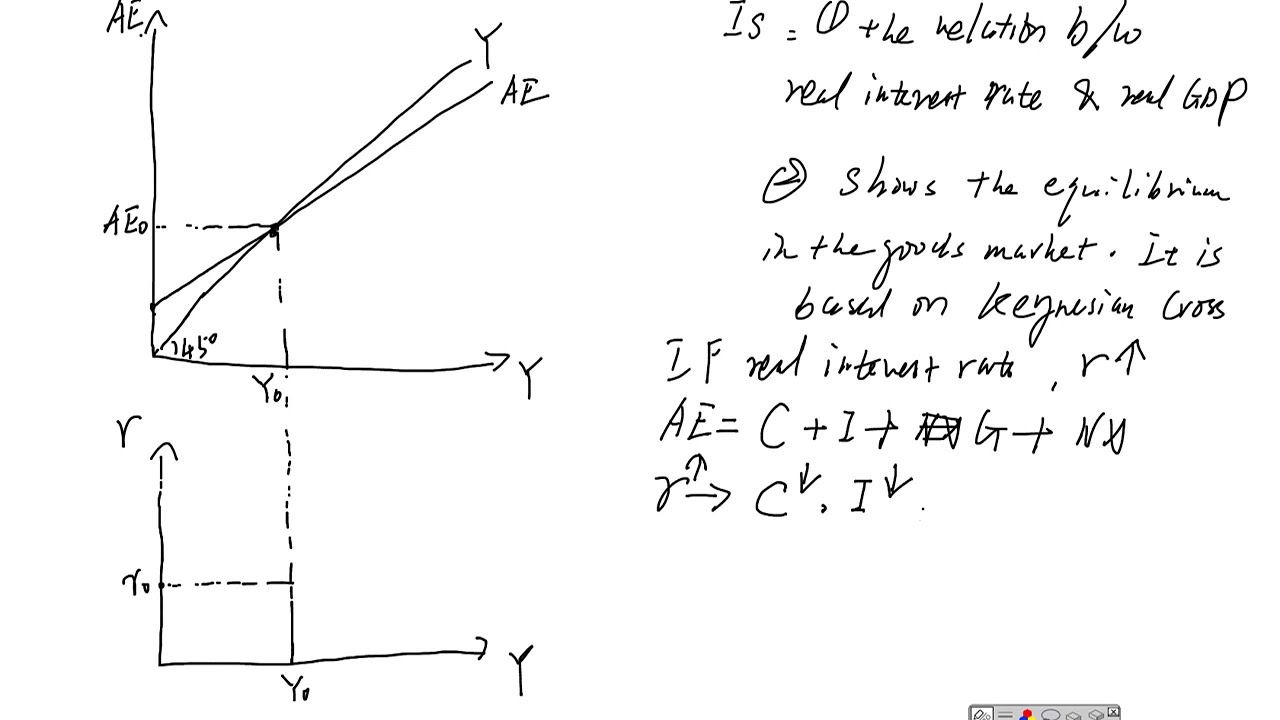 AE
Y
AE
AE0
45°
Y0
Y
r
r0
Y0
Y
IS = ① the relation b/w
real interest rate & real GDP
② shows the equilibrium
in the goods market. It is
based on Keynesian Cross
IF real interest rate, r↑
AE = C + I + G + NX
r↑ → C↓, I↓